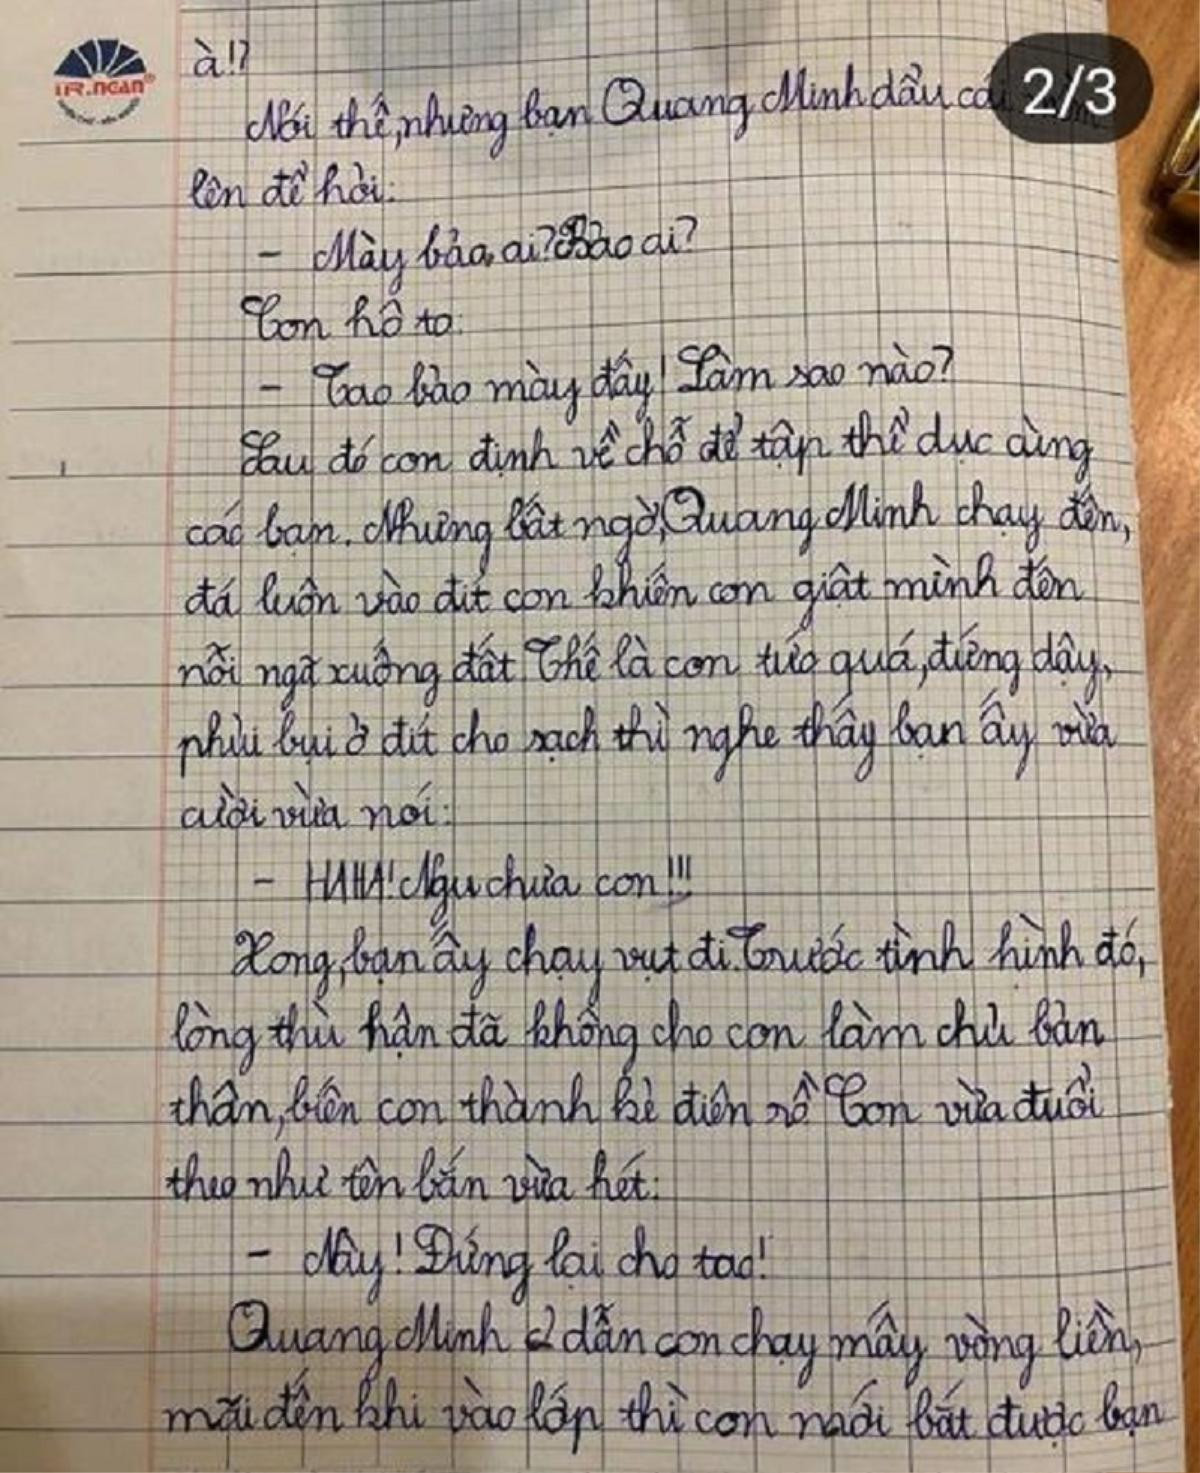 à!?
2/3
TR.NGAN
Nói thế, nhưng bạn Quang Minh dẩu cái
lên để hỏi:
- Mày bảo ai? Bảo ai?
Con hô to:
- Tao bảo mày đấy! Làm sao nào?
Sau đó con định về chỗ để tập thể dục cùng
các bạn. Nhưng bất ngờ, Quang Minh chạy đến,
đá luôn vào đít con khiến con giật mình đến
nỗi ngã xuống đất. Thế là con tức quá, đứng dậy,
phủi bụi ở đít cho sạch thì nghe thấy bạn ấy vừa
cười vừa nói:
- HAHA! Ngu chưa con!!!
Xong, bạn ấy chạy vụt đi. Trước tình hình đó,
lòng thù hận đã không cho con làm chủ bản
thân, biến con thành kẻ điên rồ. Con vừa đuổi
theo như tên bắn vừa hét:
- Này! Đứng lại cho tao!
Quang Minh dẫn con chạy mấy vòng liền,
mãi đến khi vào lớp thì con mới bắt được bạn